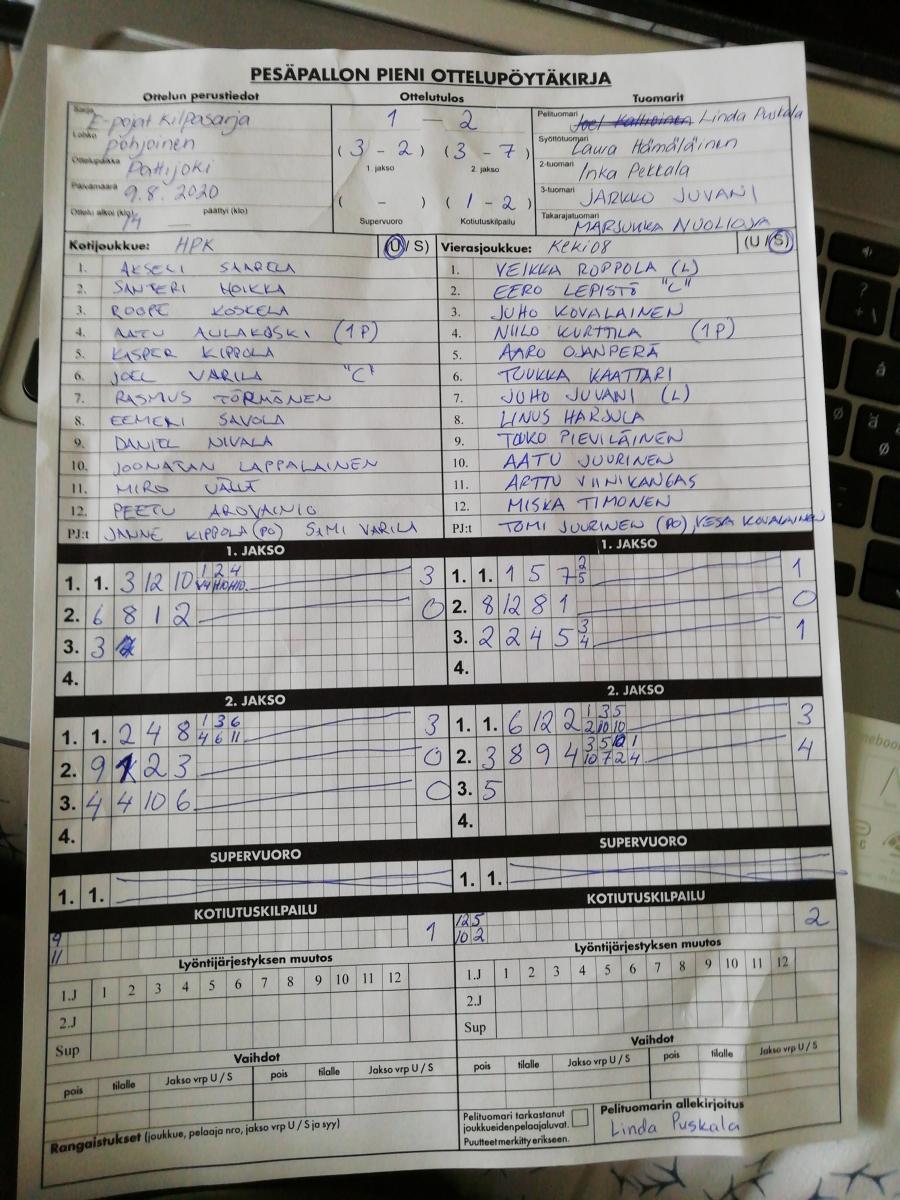 PESÄPALLON PIENI OTTELUPÖYTÄKIRJA
Ottelun perustiedot
Sarja E-pojat Kilpasarja
Lohko pohjoinen
Ottelupaikka Pattijoki
Päivämäärä 9.8. 2020
Ottelu alkoi (klo) 14 päättyi (klo) —
Ottelutulos
1 — 2
(3 - 2) (3 - 7)
1. jakso 2. jakso
( - ) (1 - 2)
Supervuoro Kotiutuskilpailu
Tuomarit
Pelituomari Linda Puskala
Syöttötuomari Laura Hämäläinen
2-tuomari Inka Pekkala
3-tuomari JARKKO JUVANI
Takarajatuomari MARJUKKA NUOLIOJA
Kotijoukkue: HPK (U / S)
1. AKSELI SAARELA
2. SANTERI HOIKKA
3. ROOPE KOSKELA
4. AATU AULAKOSKI (1P)
5. KASPER KIPPOLA
6. JOEL VARILA "C"
7. RASMUS TÖRMÖNEN
8. EEMELI SAVOLA
9. DANIEL NIVALA
10. JOONATAN LAPPALAINEN
11. MIRO
12. PEETU AROVAINIO
PJ:t JANNE KIPPOLA (PO) SAMI VARILA
Vierasjoukkue: KeKi08 (U / S)
1. VEIKKA ROPPOLA (L)
2. EERO LEPISTÖ "C"
3. JUHO KOVALAINEN
4. NIILO KURTTILA (1P)
5. AARO OJANPERÄ
6. TUUKKA KAATTARI
7. JUHO JUVANI (L)
8. LINUS HARJULA
9. TOUKO PIEVILÄINEN
10. AATU JUURINEN
11. ARTTU VIINIKANGAS
12. MISKA TIMONEN
PJ:t TOMI JUURINEN (PO), VESA KOVALAINEN
1. JAKSO
1. 1. 3 12 10 1 2 4 3
2. 6 8 1 2 0
3. 3
4.
1. JAKSO
1. 1. 1 5 7 2 5 1
2. 8 12 8 1 0
3. 2 2 4 5 3 4 1
4.
2. JAKSO
1. 1. 2 4 8 1 3 6 3
4 6 11
2. 9 2 3 0
3. 4 4 10 6 0
4.
2. JAKSO
1. 1. 6 12 2 1 3 5 3
2 10 10
2. 3 8 9 4 3 5 1 4
10 7 2 4
3. 5
4.
SUPERVUORO
1. 1.
SUPERVUORO
1. 1.
KOTIUTUSKILPAILU
9 1
11
KOTIUTUSKILPAILU
12 5 2
10 2
Lyöntijärjestyksen muutos
1.J 1 2 3 4 5 6 7 8 9 10 11 12
2.J
Sup
Lyöntijärjestyksen muutos
1.J 1 2 3 4 5 6 7 8 9 10 11 12
2.J
Sup
Vaihdot
pois tilalle Jakso vrp U / S pois tilalle Jakso vrp U / S
Vaihdot
pois tilalle Jakso vrp U / S pois tilalle Jakso vrp U / S
Rangaistukset (joukkue, pelaaja nro, jakso vrp U / S ja syy)
Pelituomari tarkastanut
joukkueiden pelaajaluvat.
Puutteet merkitty erikseen.
Pelituomarin allekirjoitus
Linda Puskala